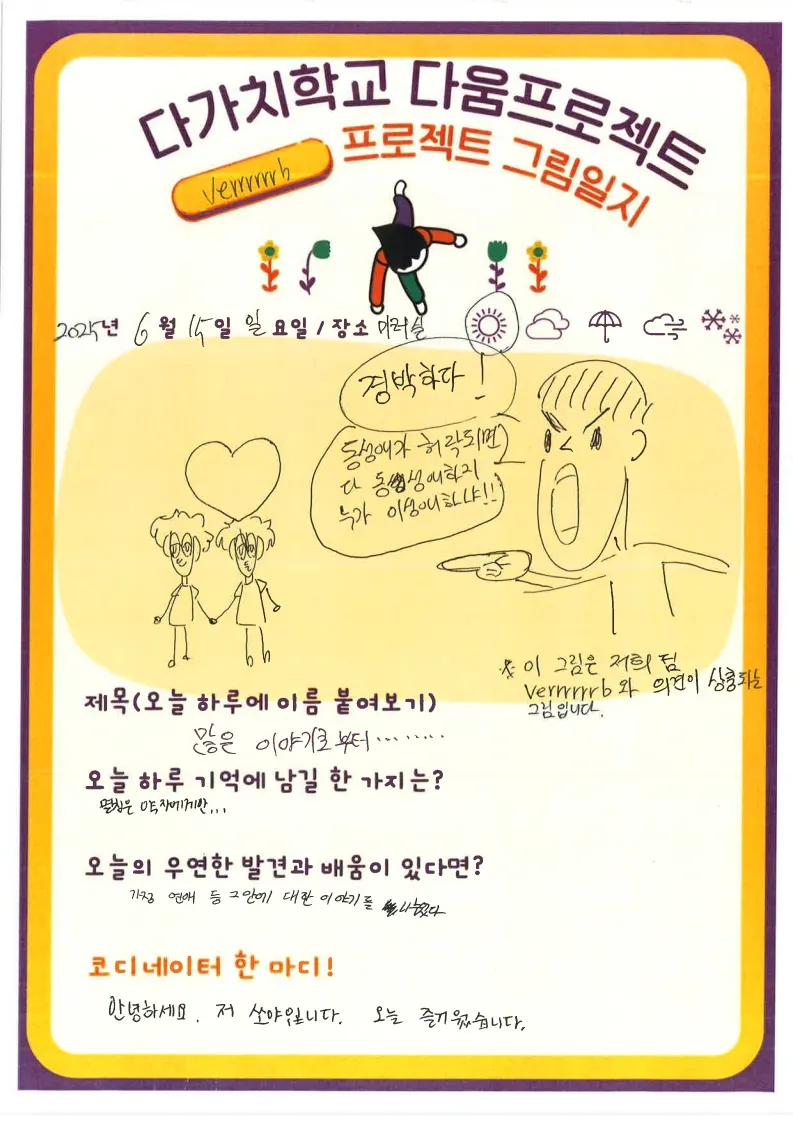 다가치학교 다움프로젝트
프로젝트 그림일지
Verrrrrrb
2025년 6월 15일 일요일 / 장소 미러실
경박하다!
동성애가 허락되면
다 동성애하지
누가 이성애하냐!!
※ 이 그림은 저희 팀
Verrrrrrb와 의견이 상충되는
그림입니다.
제목(오늘 하루에 이름 붙여보기)
많은 이야기로부터………
오늘 하루 기억에 남길 한 가지는?
멸칭은 약자에게만...
오늘의 우연한 발견과 배움이 있다면?
가정 연애 등 그 안에 대한 이야기를 나눴다
코디네이터 한 마디!
안녕하세요. 저 쏘야입니다. 오늘 즐거웠습니다.